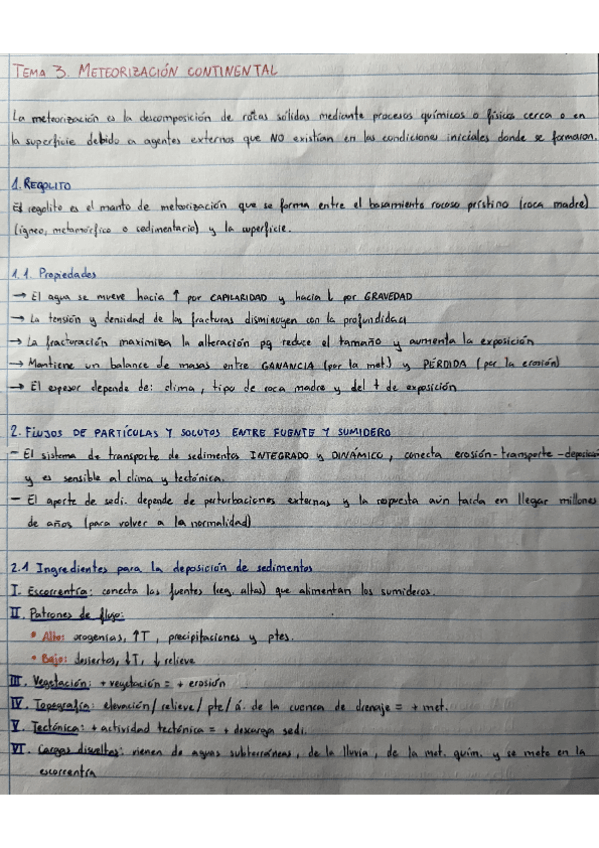 TEMA 3. METEORIZACIÓN CONTINENTAL
La meteorización es la descomposición de rocas sólidas mediante procesos químicos o físicos cerca o en
la superficie debido a agentes externos que NO existían en las condiciones iniciales donde se formaron.
1. REGOLITO
El regolito es el manto de meteorización que se forma entre el basamento rocoso prístino (roca madre)
(ígneo, metamórfico o sedimentario) y la superficie.
1.1. Propiedades
→ El agua se mueve hacia ↑ por CAPILARIDAD y hacia ↓ por GRAVEDAD
→ La tensión y densidad de las fracturas disminuyen con la profundidad
→ La fracturación maximiza la alteración pq reduce el tamaño y aumenta la exposición
→ Mantiene un balance de masas entre GANANCIA (por la met.) y PÉRDIDA (por la erosión)
→ El espesor depende de: clima, tipo de roca madre y del t de exposición
2. FLUJOS DE PARTÍCULAS Y SOLUTOS ENTRE FUENTE Y SUMIDERO
- El sistema de transporte de sedimentos INTEGRADO y DINÁMICO, conecta erosión-transporte-deposición
y es sensible al clima y tectónica.
- El aporte de sedi. depende de perturbaciones externas y la respuesta aún tarda en llegar millones
de años (para volver a la normalidad).
2.1 Ingredientes para la deposición de sedimentos
I. Escorrentía: conecta las fuentes (reg. altas) que alimentan los sumideros.
II. Patrones de flujo:
• Alto: orogenias, ↑T, precipitaciones y ptes.
• Bajo: desiertos, ↓T, ↓ relieve
III. Vegetación: + vegetación = + erosión
IV. Topografía: elevación/relieve/pte/á. de la cuenca de drenaje = + met.
V. Tectónica: + actividad tectónica = + descarga sedi.
VI. Cargas disueltas: vienen de aguas subterráneas, de la lluvia, de la met. quím. y se mete en la
escorrentía